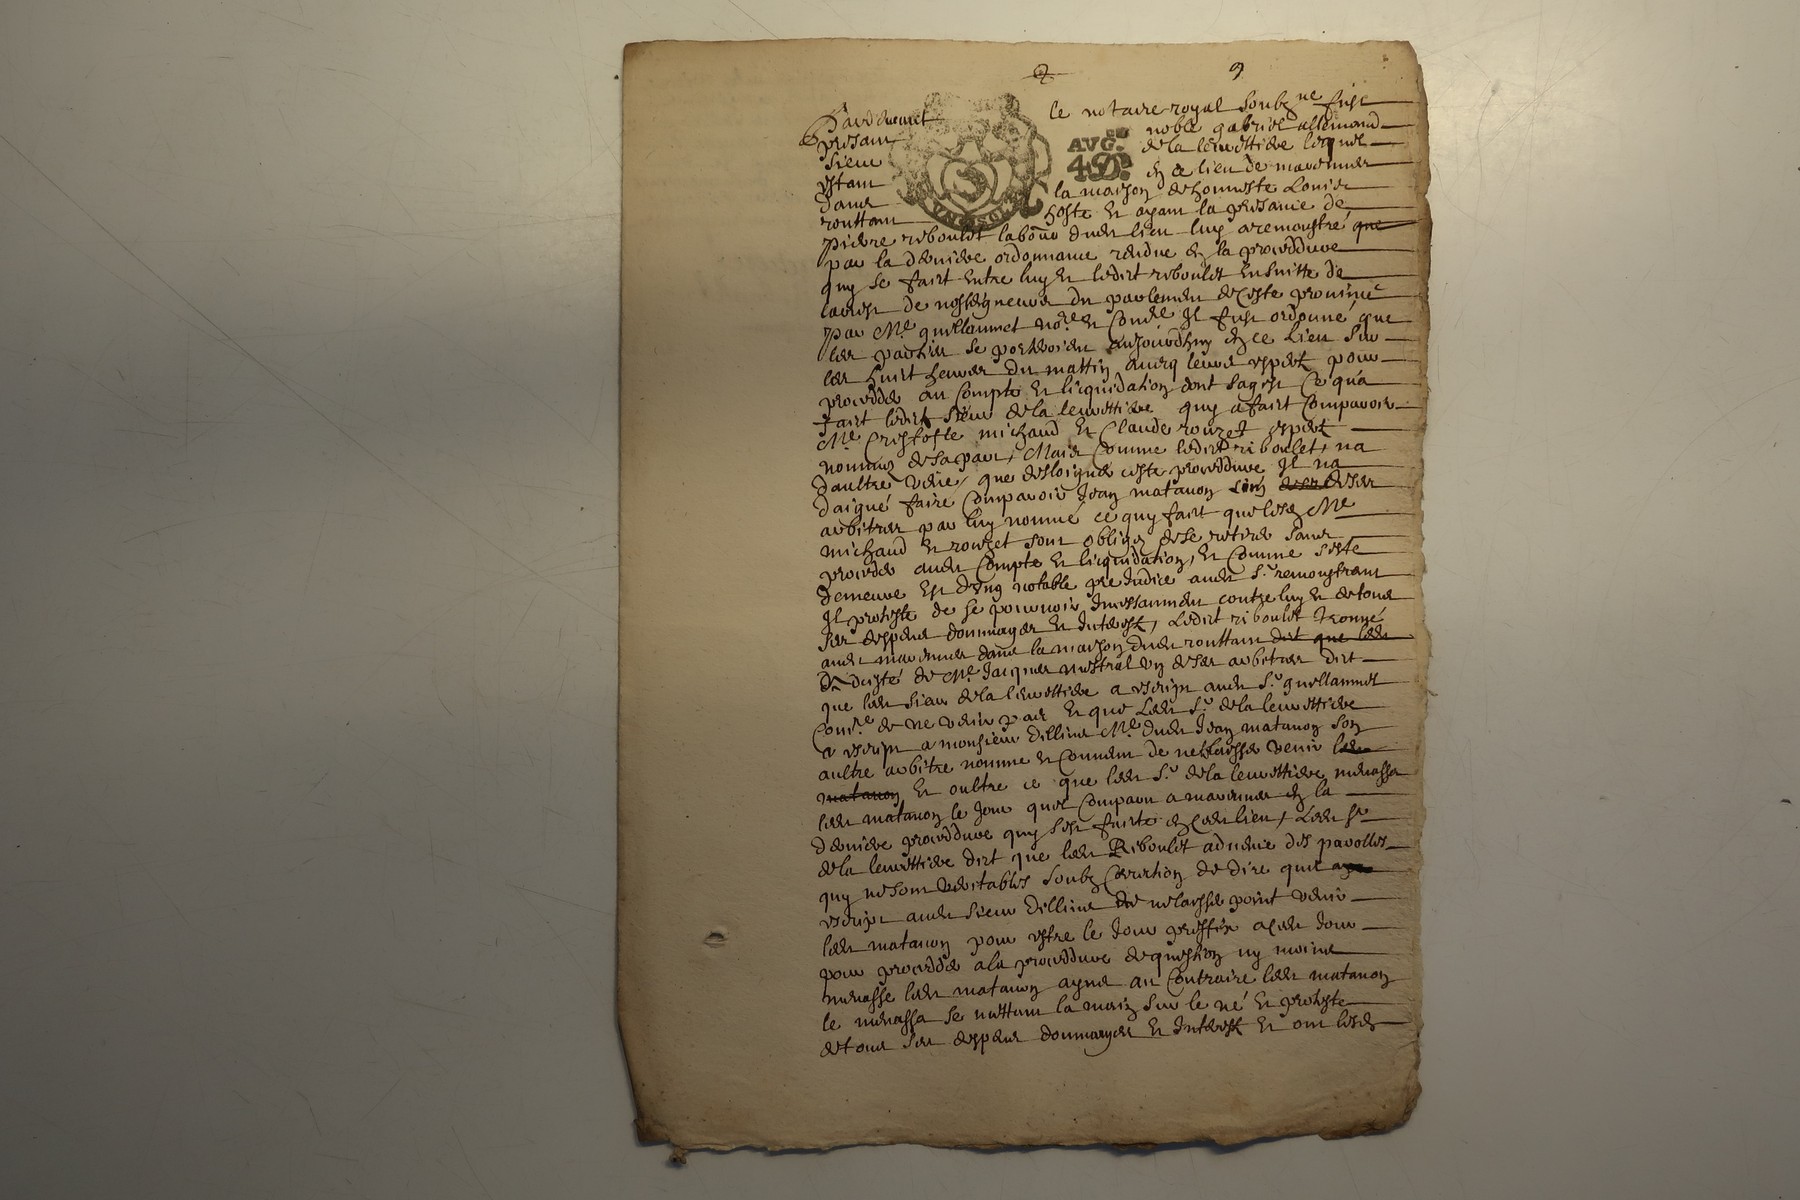 2 9
Pardevant le notaire royal soubzne fust
presant noble gabriel allemand
sieur de la leuvettiere lequel
estant en ce lieu de
dans la maison de honneste Louis
routtam hoste et ayant la presance de
pierre reboulet dudt lieu luy a remonstré que
par la derniere ordonnance rendue en la proceddure
quy se faict entre luy et ledict riboulet ensuitte de
larest de nosseigneurs du parlement de ceste province
par Me guillaumet nore et Comre Il fust ordonné que
les parties se porteroient aujourdhuy en ce lieu sur
les huict heures du mattin avecq leurs expert pour
procedder au compte et licquidation dont sagist Ce qua
faict ledict sieur de la leuvettiere quy a faict comparoir
Me Cristofle michaud et Claude rouzet expert
nommes de sa part, Mais comme ledict riboulet, na
daultre veue, que desloigner ceste proceddure Il na
daigné faire comparoir Jean matanon lun de ses
arbitres par luy nommé ce quy faict que lesd Me
michaud et rouzet sont obliges de se retirer sans
proceder audt compte et licquidation, et comme ceste
demeure est dung notable prejudice audt Sr remonstrant
Il proteste de se pourvoir incessamment contre luy et de tous
ses despens dommages et interest, Ledict riboulet treuvé
audt dans la maison dudt routtam dict que ledt
assisté de Me Jacques mistral un de ses arbitres dict
que ledt sieur de la leuvettiere a escript audt Sr guillaumet
Comre de ne venir pas et que Ledt Sr de la leuvettiere
a escript a monsieur dillins Me dudt Jean matanon son
aultre arbitre nommé et convenu de ne laisser venir ledt
matanon et oultre ce que ledt Sr de la leuvettiere menassa
ledt matanon le jour quil comparu a en la
derniere proceddure quy sest faicte en cedt lieu, Ledt Sr
de la leuvettiere dict que ledt Riboulet advance des parolles
quy ne sont veritables soubz correction de dire quil aye
escript audt sieur dillins de ne laisser point venir
ledt matanon pour estre le jour preffix a cedt jour
pour procedder a la proceddure de question ny moins
menasse ledt matanon ayns au Contraire ledt matanon
le menassa se mettant la main sur le né et proteste
de tous ses despens dommages et interest et ont lesd